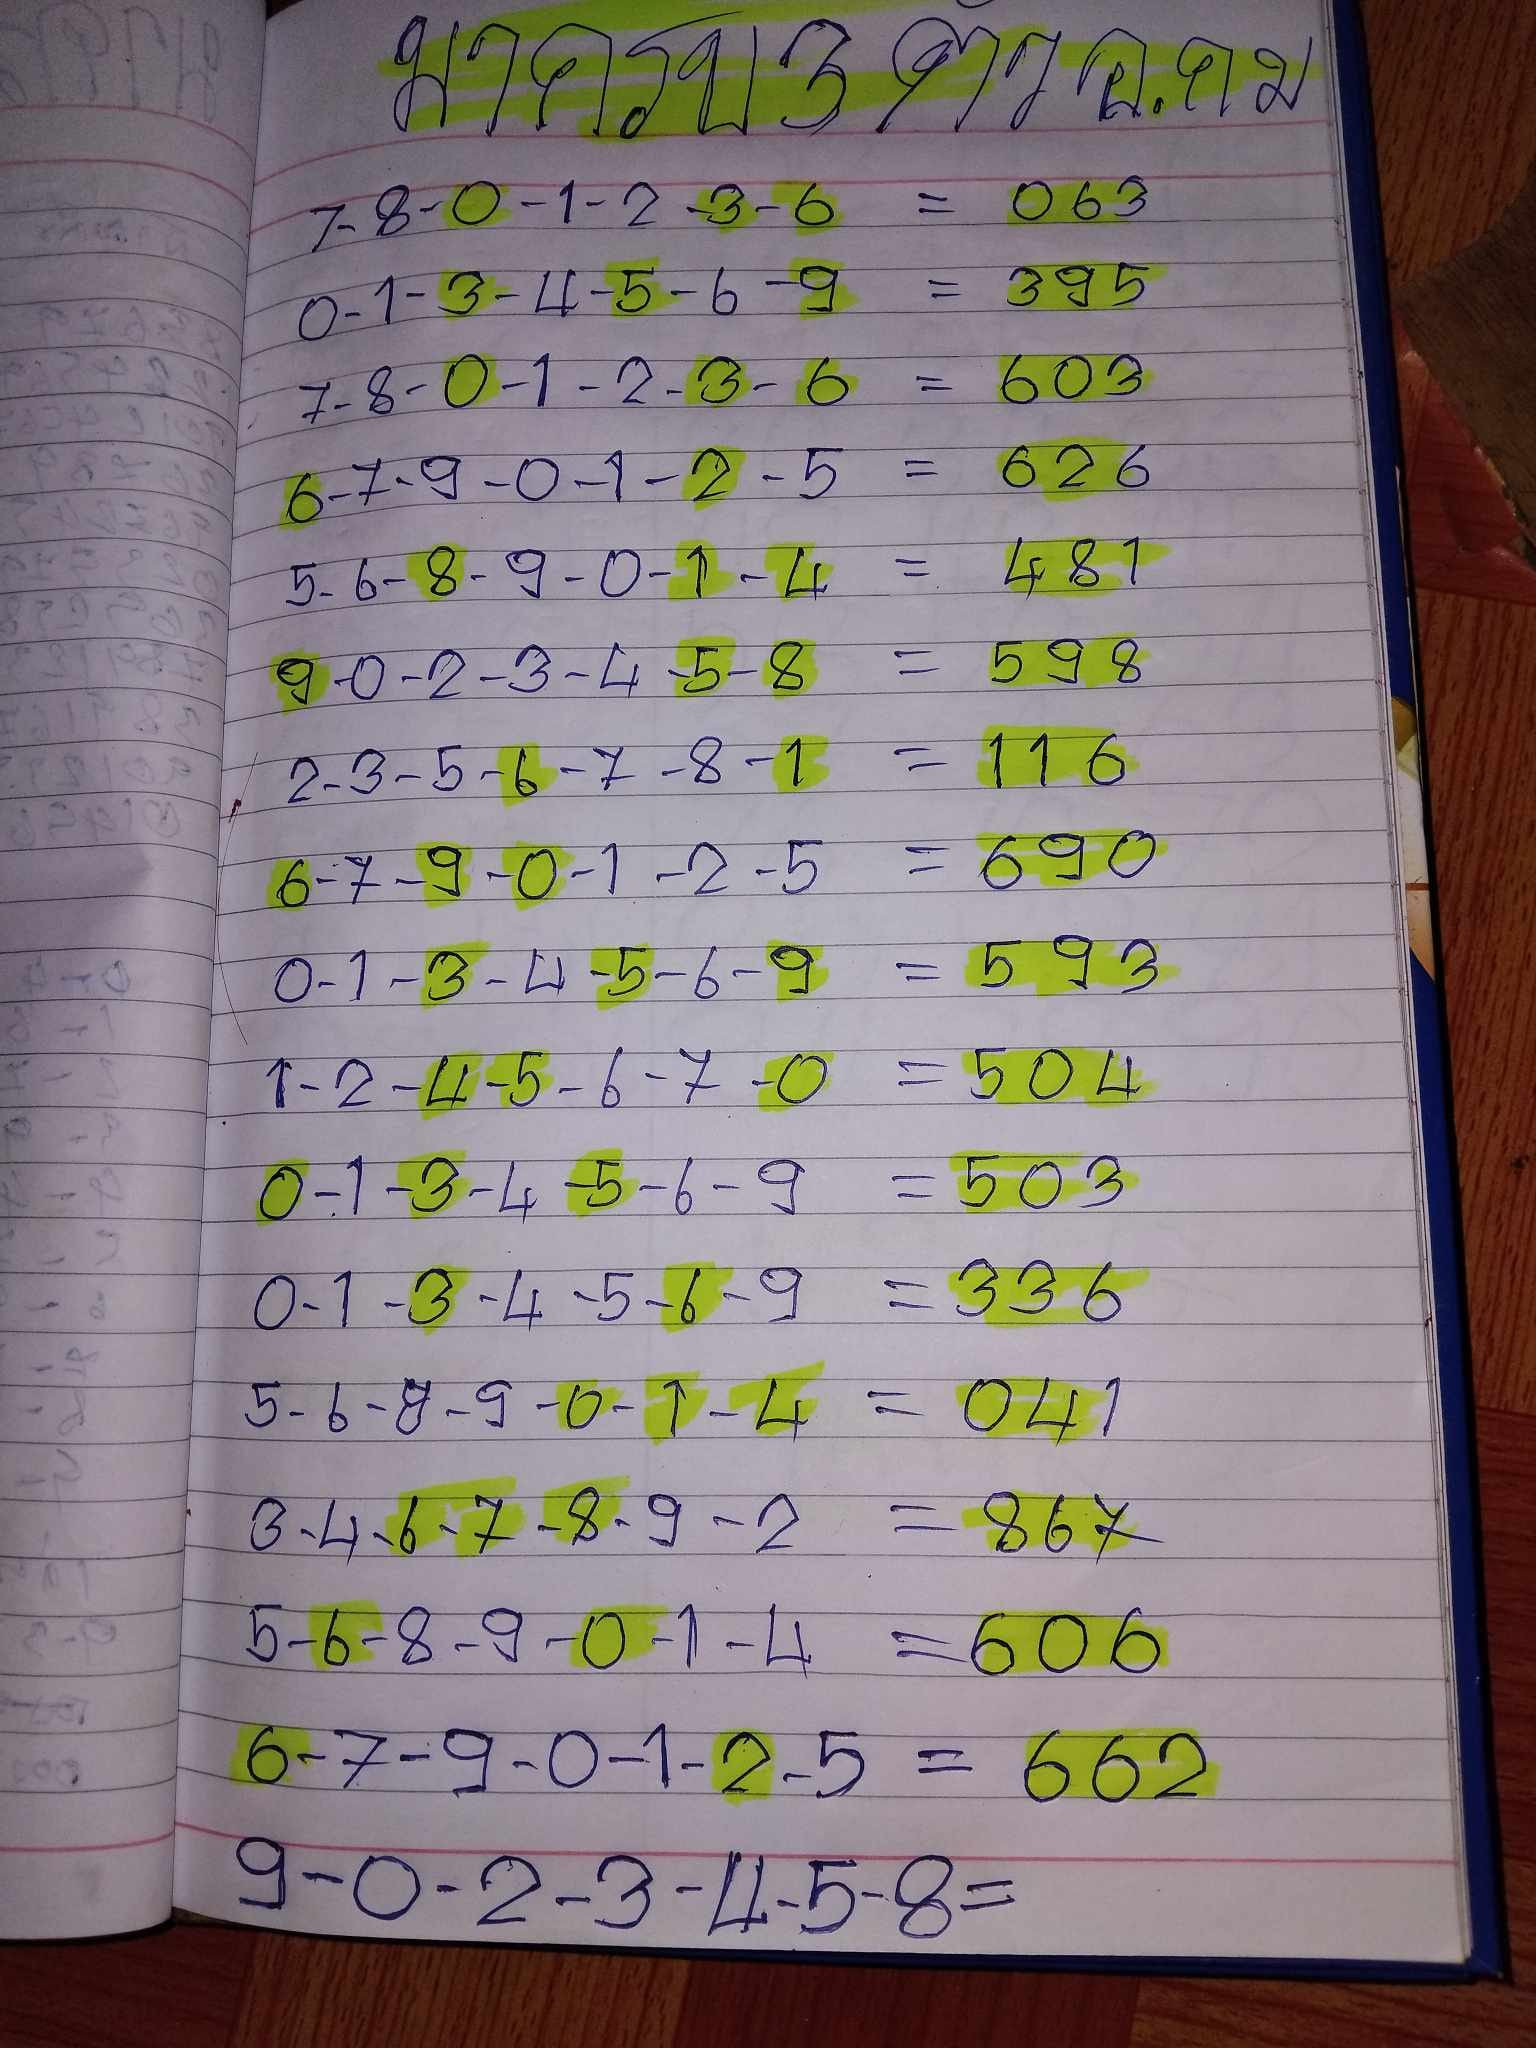 มาครบ3ตัว อ.คม
7-8-0-1-2-3-6 = 063
0-1-3-4-5-6-9 = 395
7-8-0-1-2-3-6 = 603
6-7-9-0-1-2-5 = 626
5-6-8-9-0-1-4 = 481
9-0-2-3-4-5-8 = 598
2-3-5-6-7-8-1 = 116
6-7-9-0-1-2-5 = 690
0-1-3-4-5-6-9 = 593
1-2-4-5-6-7-0 = 504
0-1-3-4-5-6-9 = 503
0-1-3-4-5-6-9 = 336
5-6-8-9-0-1-4 = 041
3-4-6-7-8-9-2 = 867
5-6-8-9-0-1-4 = 606
6-7-9-0-1-2-5 = 662
9-0-2-3-4-5-8=